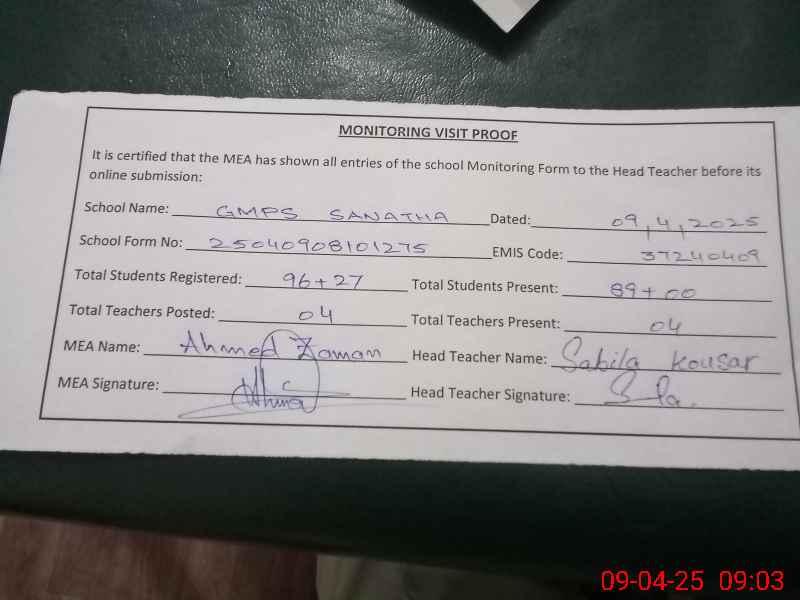 MONITORING VISIT PROOF
It is certified that the MEA has shown all entries of the school Monitoring Form to the Head Teacher before its
online submission:
School Name: GMPS SANATHA Dated: 09,4,2025
School Form No: 25040908101275 EMIS Code: 37240409
Total Students Registered: 96+27 Total Students Present: 89+00
Total Teachers Posted: 04 Total Teachers Present: 04
MEA Name: Ahmed Zaman Head Teacher Name: Sabila Kousar
MEA Signature: Head Teacher Signature:
09-04-25 09:03